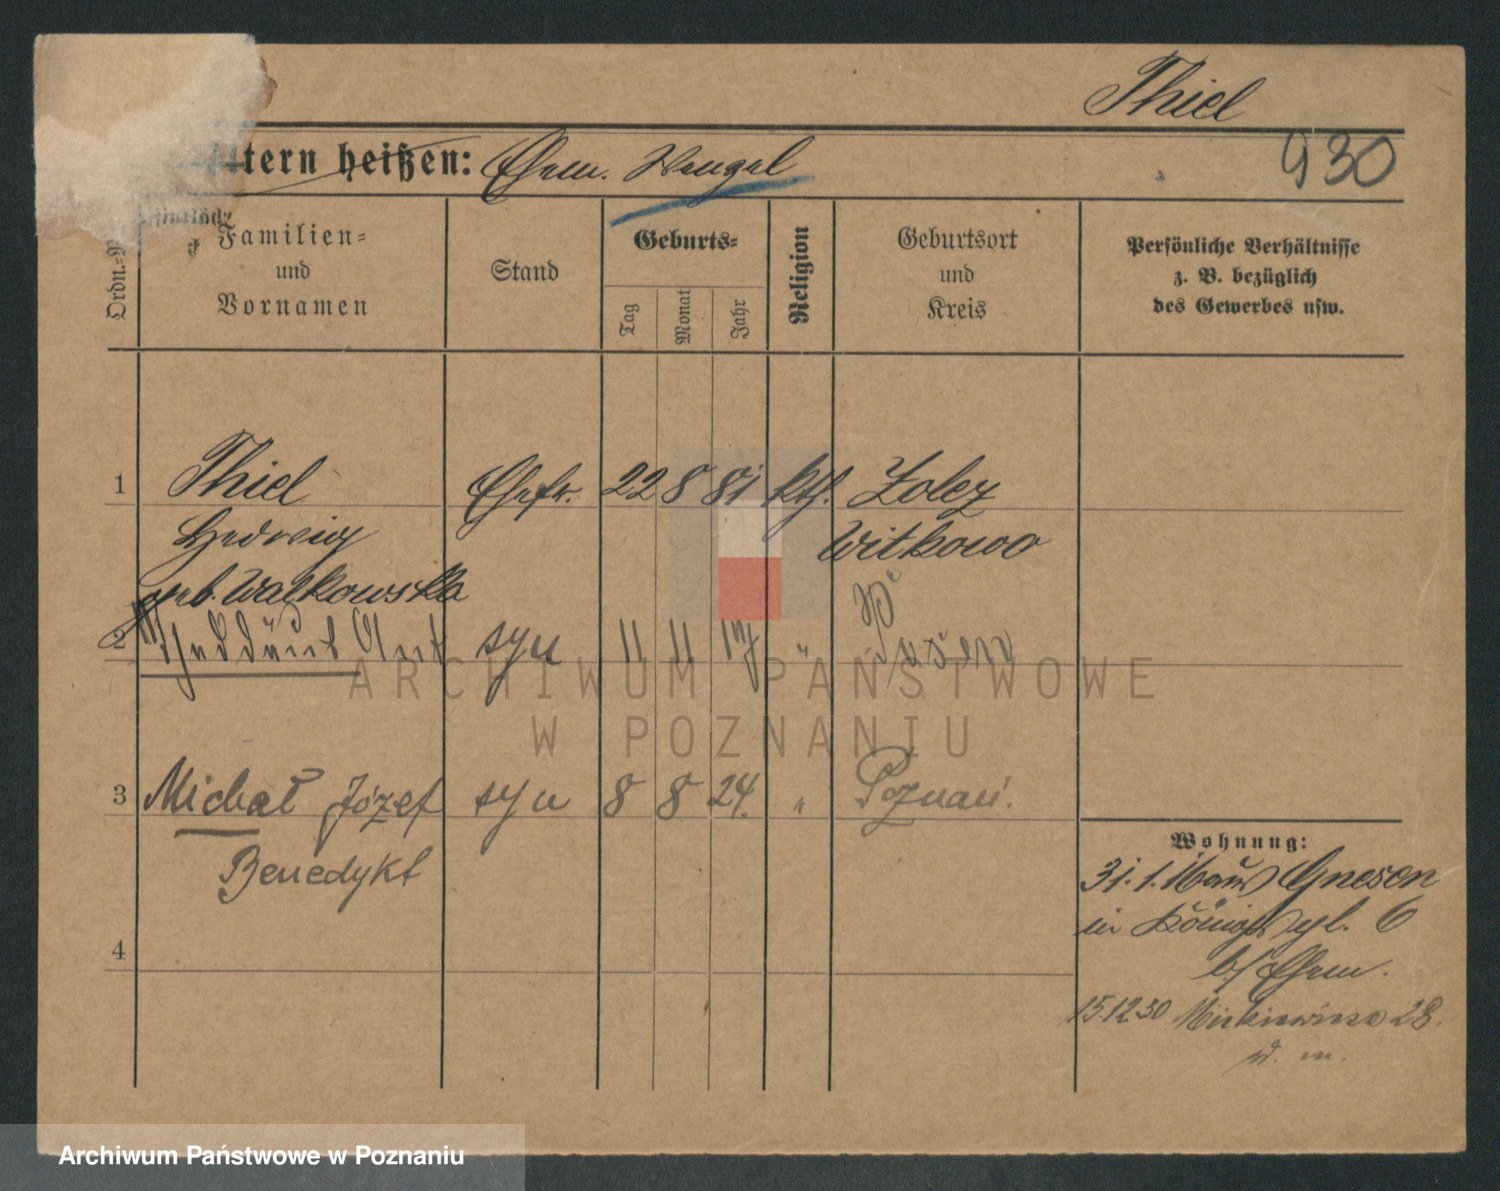 Thiel
930
ltern heißen: Ehem. Wenzel
Ordn.-N
Familien-
und
Vornamen
Stand
Geburts-
Tag
Monat
Jahr
Religion
Geburtsort
und
Kreis
Persönliche Verhältnisse
z. B. bezüglich
des Gewerbes usw.
1 Thiel Ehefr. 22 8 81 kth. Zolcz
Hedwig Witkowo
geb. Walkowska
2 syn 11 11 "
3 Michał Józef syn 8 8 24. " Poznań.
Benedykt
4
Wohnung:
31.1. Gnesen
in 6
b/ Ehem.
15.12.30 28.
ARCHIWUM PAŃSTWOWE
W POZNANIU
Archiwum Państwowe w Poznaniu